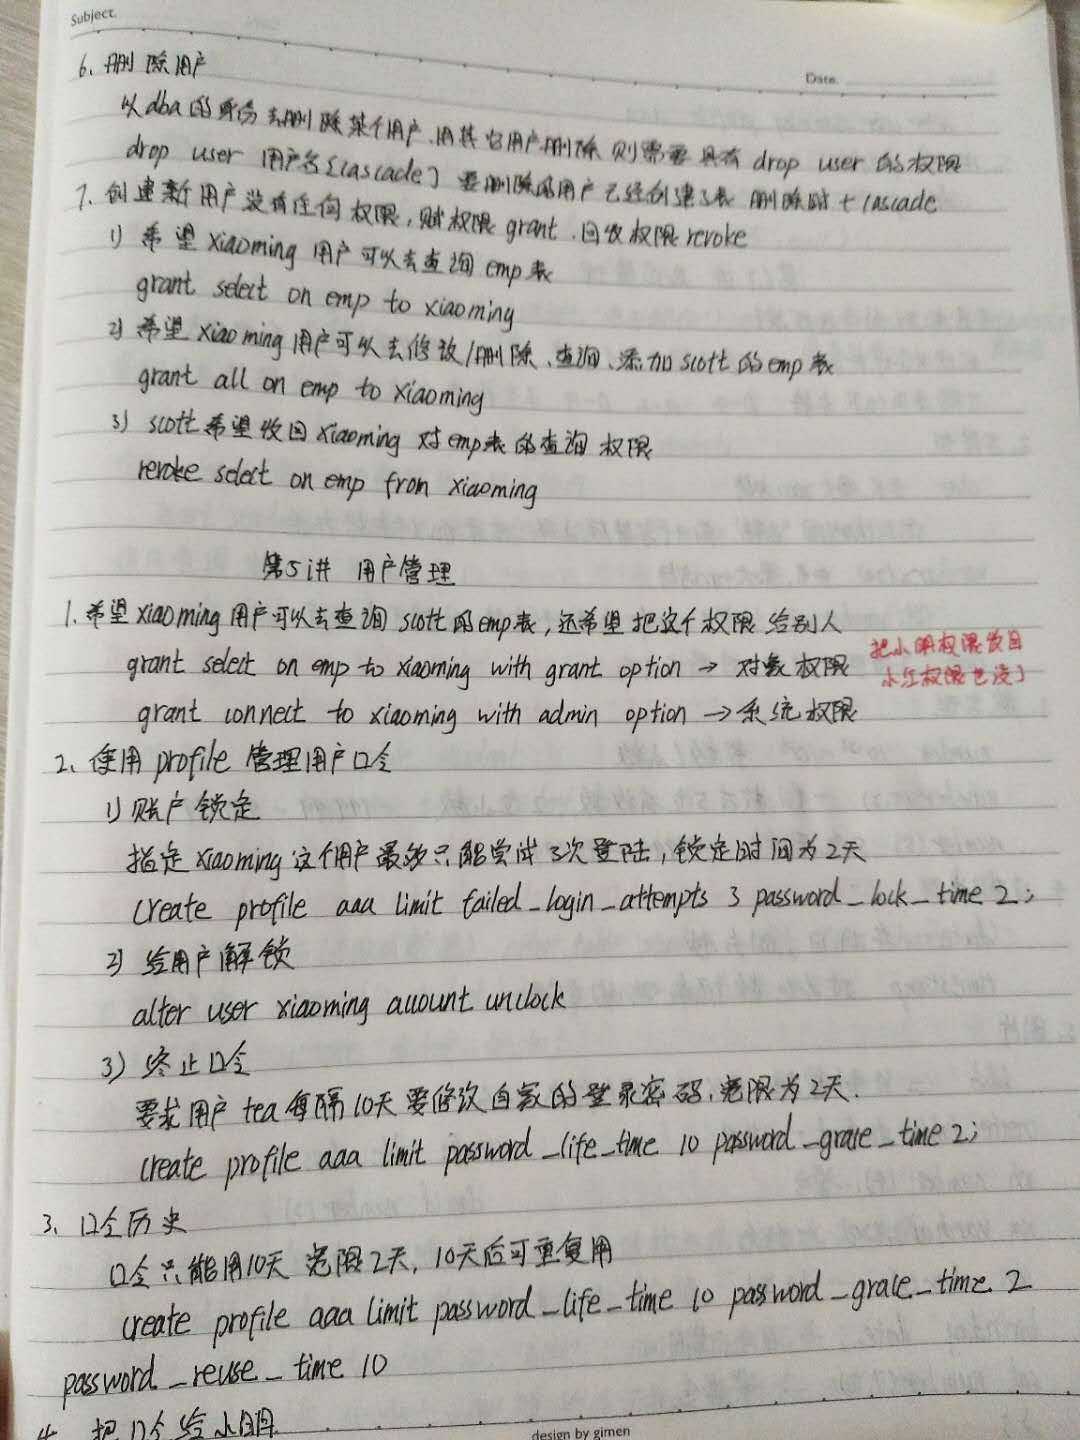 Subject.
Date.
6、删除用户
以dba的身份去删除某个用户,用其它用户删除则需要具有 drop user 的权限
drop user 用户名[cascade] 要删除的用户已经创建了表 删除时+cascade
7、创建新用户没有任何权限,赋权限 grant、回收权限 revoke
1) 希望 xiaoming 用户可以去查询 emp表
grant select on emp to xiaoming
2) 希望 xiaoming 用户可以去修改/删除、查询、添加 scott 的 emp表
grant all on emp to xiaoming
3) scott 希望收回 xiaoming 对emp表的查询权限
revoke select on emp from xiaoming
第5讲 用户管理
1.希望xiaoming用户可以去查询 scott的emp表,还希望把这个权限给别人
grant select on emp to xiaoming with grant option → 对象权限
把小明权限收回
小红权限也没了
grant connect to xiaoming with admin option → 系统权限
2、使用 profile 管理用户口令
1) 账户锁定
指定 xiaoming 这个用户最多只能尝试3次登陆,锁定时间为2天
create profile aaa limit failed_login_attempts 3 password_lock_time 2;
2) 给用户解锁
alter user xiaoming account unclock
3) 终止口令
要求用户 tea 每隔10天要修改自家的登录密码,宽限为2天.
create profile aaa limit password_life_time 10 password_grace_time 2;
3、口令历史
口令只能用10天 宽限2天, 10天后可重复用
create profile aaa limit password_life_time 10 password_grace_time 2
password_reuse_time 10
4、把口令给小明
design by gimen